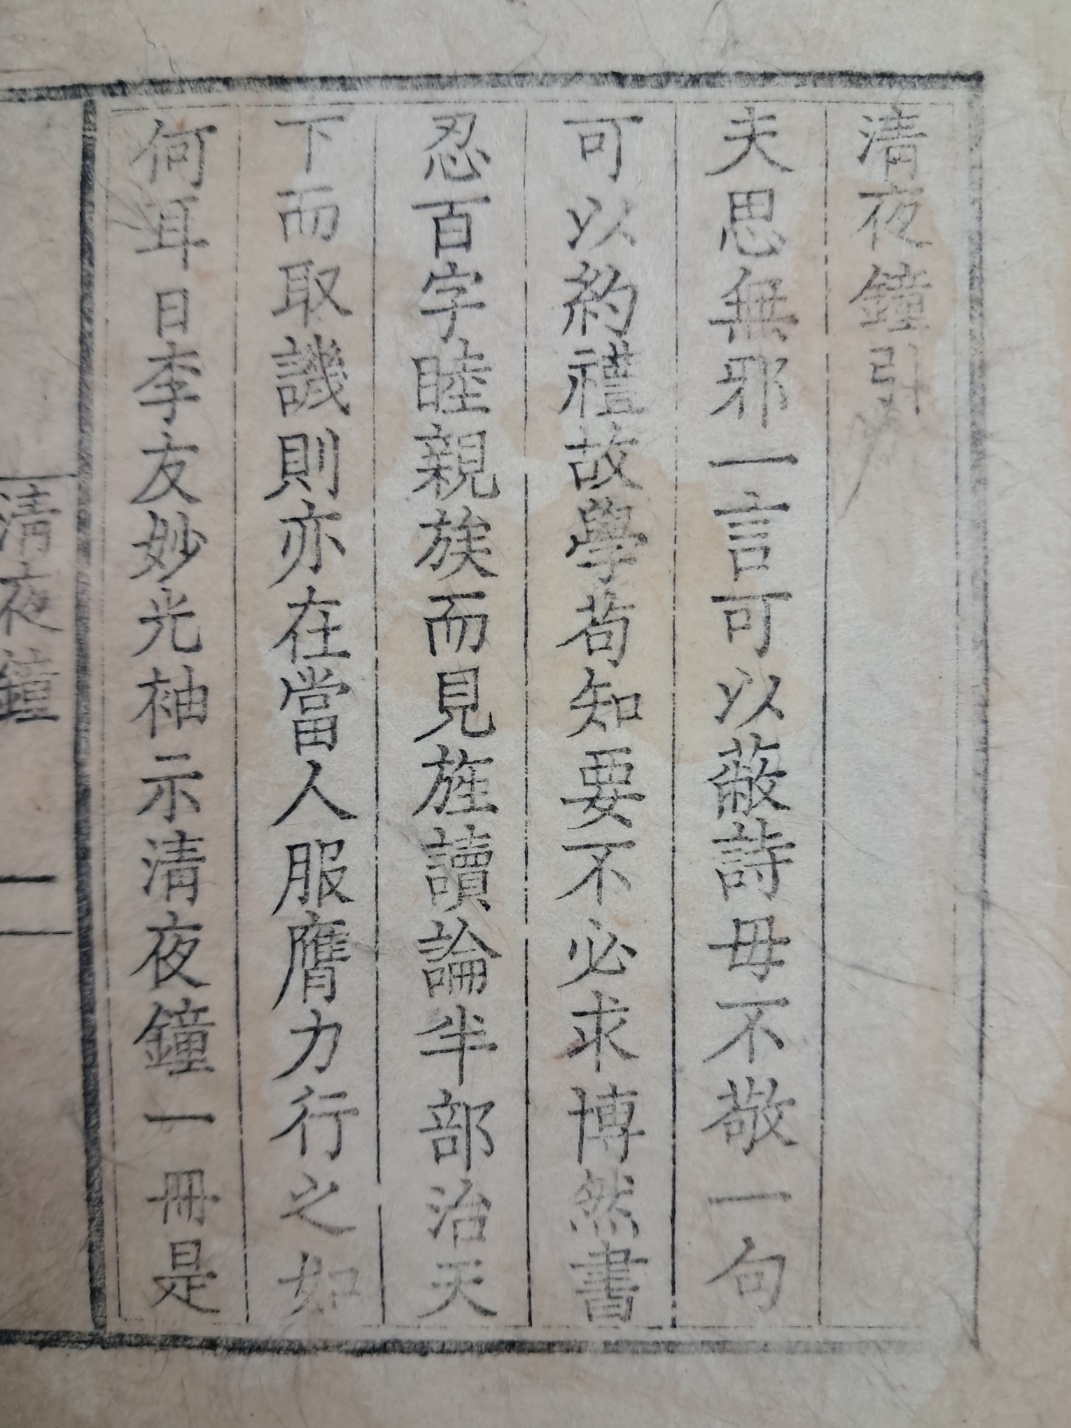 清夜鐘引
夫思無邪一言可以蔽詩毋不敬一句
可以約禮故學苟知要不必求博然書
忍百字睦親族而見旌讀論半部治天
下而取譏則亦在當人服膺力行之如
何耳日李友妙光袖示清夜鐘一冊是
清夜鐘
一